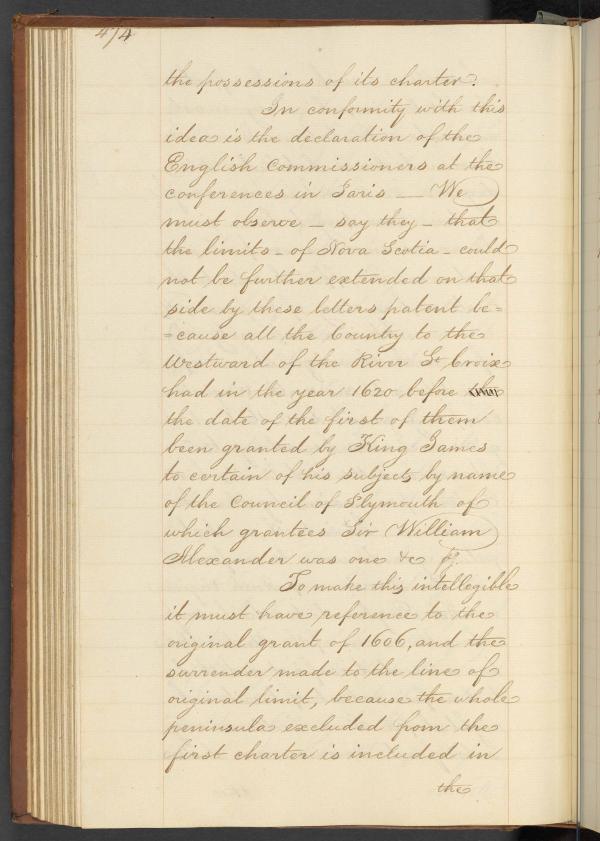 474
the possessions of its charter.
In conformity with this
idea is the declaration of the
English Commissioners at the
conferences in Paris — We
must observe – say they – that
the limits – of Nova Scotia – could
not be further extended on that
side by these letters patent be=
=cause all the Country to the
Westward of the River St. Croix
had in the year 1620 before the
the date of the first of them
been granted by King James
to certain of his subjects by name
of the Council of Plymouth of
which grantees Sir William
Alexander was one &c
To make this intellegible
it must have reference to the
original grant of 1606, and the
surrender made to the line of
original limit, because the whole
peninsula excluded from the
first charter is included in
the